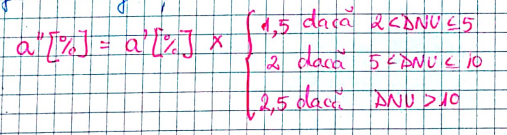 1,5 dacă 2 < DNU ≤ 5
a"[%] = a'[%] × { 2 dacă 5 < DNU ≤ 10
2,5 dacă DNU > 10